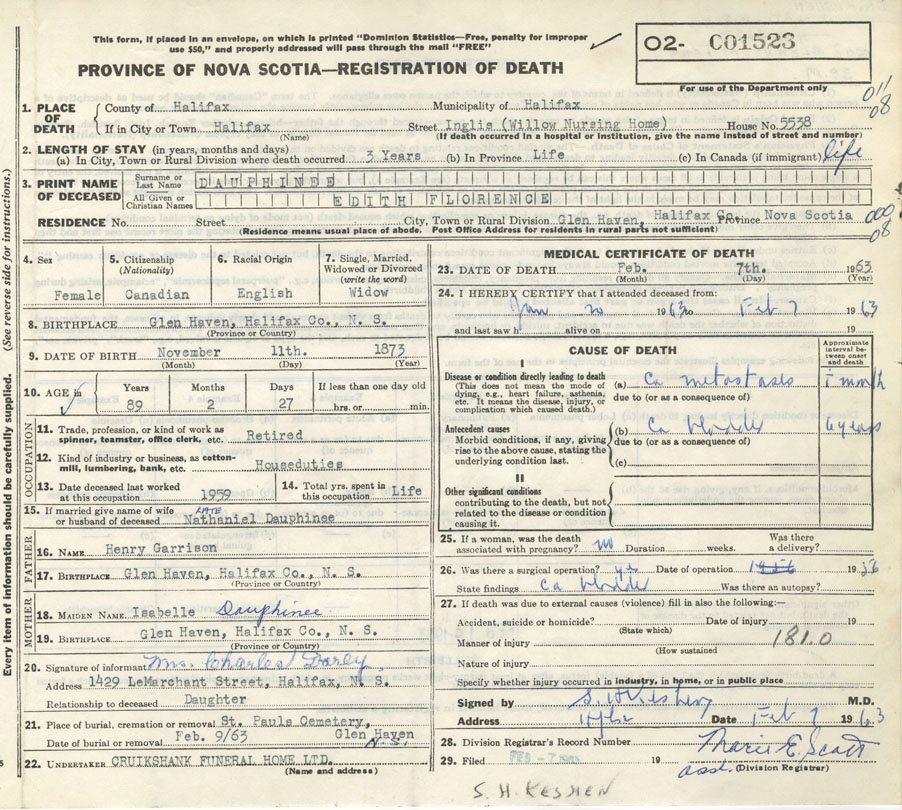 This form, if placed in an envelope, on which is printed "Dominion Statistics—Free, penalty for improper
use $50," and properly addressed will pass through the mail "FREE"
O2- C01523
For use of the Department only
PROVINCE OF NOVA SCOTIA—REGISTRATION OF DEATH
011
08
1. PLACE OF DEATH
County of Halifax Municipality of Halifax
If in City or Town Halifax Street Inglis (Willow Nursing Home) House No. 5538
(Name) (If death occurred in a hospital or institution, give the name instead of street and number)
2. LENGTH OF STAY (in years, months and days)
(a) In City, Town or Rural Division where death occurred 3 Years (b) In Province Life (c) In Canada (if immigrant) life
3. PRINT NAME OF DECEASED
Surname or Last Name DAUPHINEE
All Given or Christian Names EDITH FLORENCE
RESIDENCE No. Street City, Town or Rural Division Glen Haven, Halifax Co. Province Nova Scotia
000
08
(Residence means usual place of abode. Post Office Address for residents in rural parts not sufficient)
4. Sex
Female
5. Citizenship
(Nationality)
Canadian
6. Racial Origin
English
7. Single, Married,
Widowed or Divorced
(write the word)
Widow
8. BIRTHPLACE Glen Haven, Halifax Co., N. S.
(Province or Country)
9. DATE OF BIRTH November 11th. 1873
(Month) (Day) (Year)
10. AGE in
Years Months Days If less than one day old
89 2 27 hrs. or min.
OCCUPATION
11. Trade, profession, or kind of work as
spinner, teamster, office clerk, etc. Retired
12. Kind of industry or business, as cotton-
mill, lumbering, bank, etc. Houseduties
13. Date deceased last worked
at this occupation 1959
14. Total yrs. spent in
this occupation Life
15. If married give name of wife
or husband of deceased LATE Nathaniel Dauphinee
FATHER
16. NAME Henry Garrison
17. BIRTHPLACE Glen Haven, Halifax Co., N. S.
(Province or Country)
MOTHER
18. MAIDEN NAME Isabelle Dauphinee
19. BIRTHPLACE Glen Haven, Halifax Co., N. S.
(Province or Country)
20. Signature of informant Mrs. Charles
Address 1429 LeMarchant Street, Halifax, N. S.
Relationship to deceased Daughter
21. Place of burial, cremation or removal St. Pauls Cemetery,
Date of burial or removal Feb. 9/63 Glen Haven
N.S.
22. UNDERTAKER CRUIKSHANK FUNERAL HOME LTD.
(Name and address)
MEDICAL CERTIFICATE OF DEATH
23. DATE OF DEATH Feb. 7th. 1963
(Month) (Day) (Year)
24. I HEREBY CERTIFY that I attended deceased from:
Jan 20 1963 to Feb 7 1963
and last saw h alive on 19
CAUSE OF DEATH
Approximate
interval between
onset
and death
I
Disease or condition directly leading to death
(This does not mean the mode of
dying, e.g., heart failure, asthenia,
etc. It means the disease, injury, or
complication which caused death.)
(a) Ca metastasis 1 month
due to (or as a consequence of)
Antecedent causes
Morbid conditions, if any, giving
rise to the above cause, stating the
underlying condition last.
(b) Ca bladder 6 years
due to (or as a consequence of)
(c)
II
Other significant conditions
contributing to the death, but not
related to the disease or condition
causing it.
25. If a woman, was the death
associated with pregnancy? no Duration weeks. Was there
a delivery?
26. Was there a surgical operation? yes Date of operation 1956 1956
State findings Ca bladder Was there an autopsy?
27. If death was due to external causes (violence) fill in also the following:—
Accident, suicide or homicide? Date of injury 19
(State which)
Manner of injury 181.0
(How sustained
Nature of injury
Specify whether injury occurred in industry, in home, or in public place
Signed by S. H. Keshen M.D.
Address Hfx Date Feb 7 1963
28. Division Registrar's Record Number
29. Filed FEB -7 1963 19 Marie E. Scott
asst. (Division Registrar)
S. H. KESHEN
Every item of information should be carefully supplied. (See reverse side for instructions.)